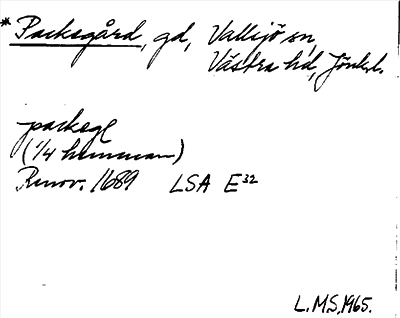 * Packsgård, gd, Vallsjö sn,
Västra hd, Jönk.l.
packsgl
(1/4 hemman)
Renov. 1689 LSA E32
L.M.S. 1965.